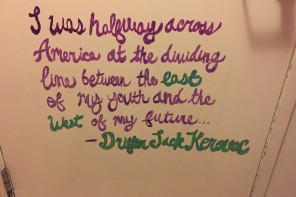 I was halfway across
America at the dividing
line between the east
of my youth and the
West of my future...
- Drifter Jack Kerouac